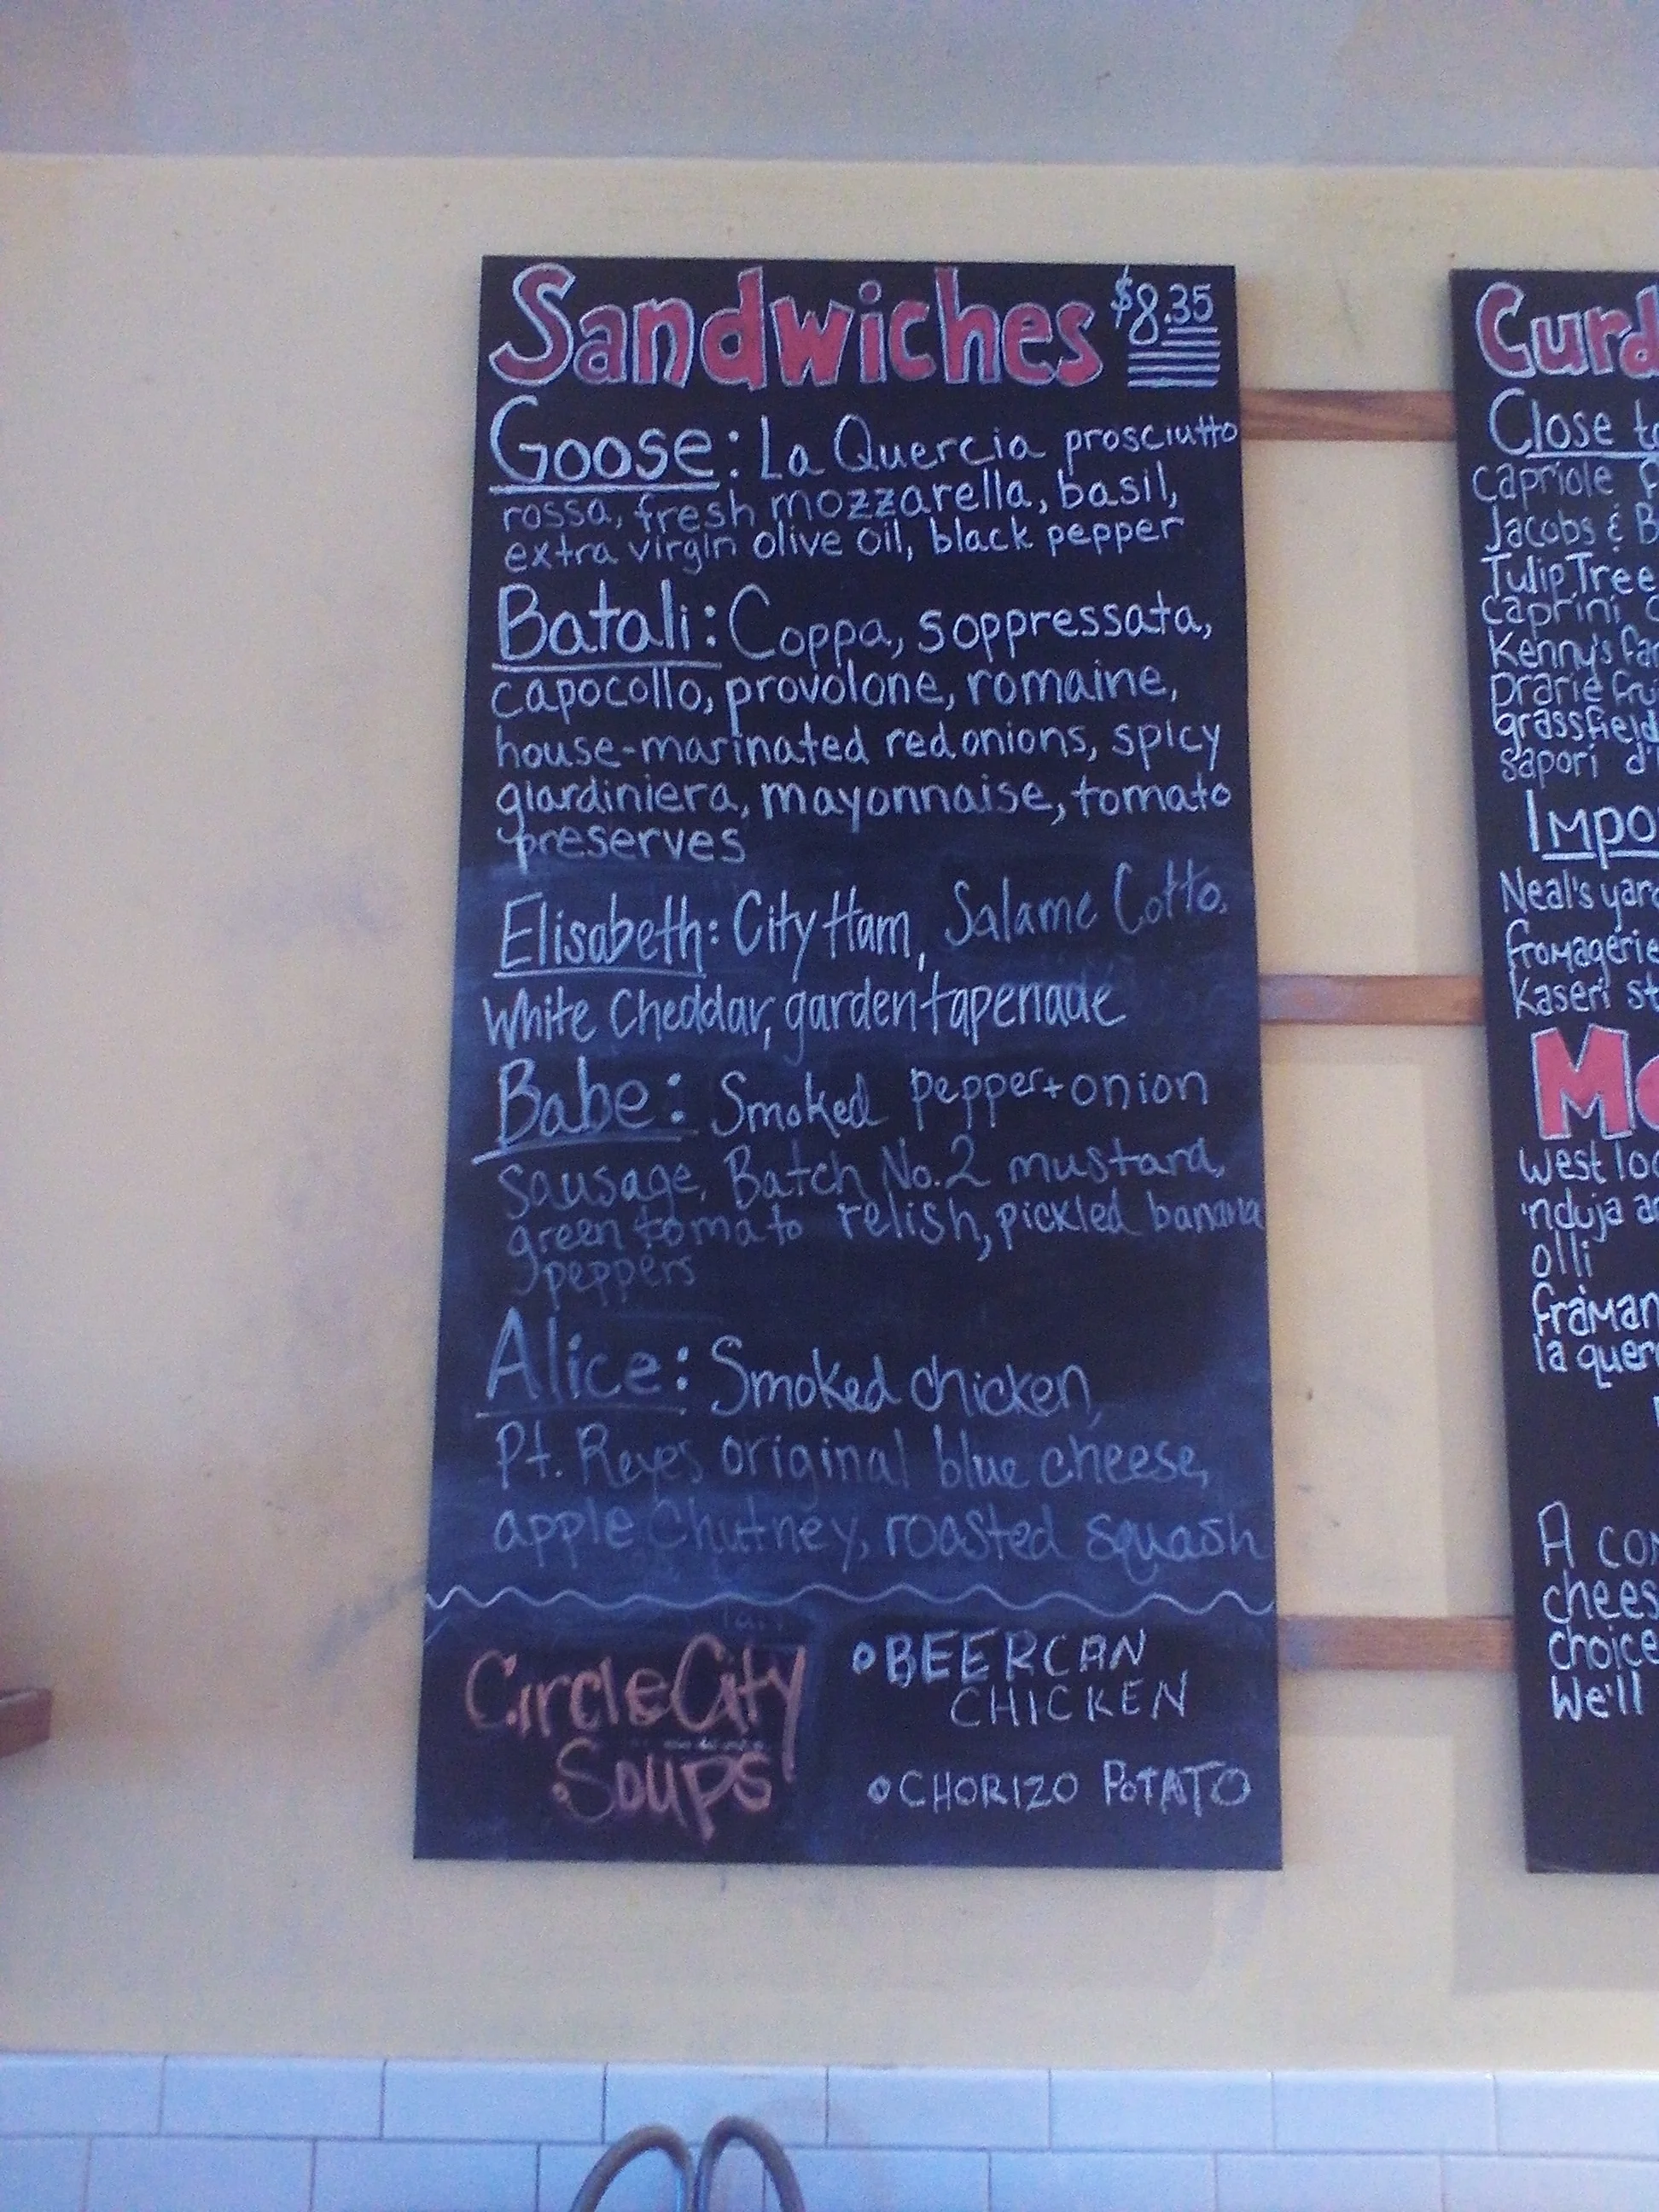 Sandwiches $8.35
Goose: La Quercia prosciutto
rossa, fresh mozzarella, basil,
extra virgin olive oil, black pepper
Batali: Coppa, soppressata,
capocollo, provolone, romaine,
house-marinated red onions, spicy
giardiniera, mayonnaise, tomato
preserves
Elisabeth: City Ham, Salame Cotto,
White Cheddar, garden tapenade
Babe: Smoked pepper + onion
sausage, Batch No. 2 mustard,
green tomato relish, pickled banana
peppers
Alice: Smoked chicken,
Pt. Reyes original blue cheese,
apple Chutney, roasted squash
Circle City
Soups
BEERCAN
CHICKEN
CHORIZO POTATO
Curd
Close to
capriole
Jacobs & B
Tulip Tree
caprini
Kenny's far
prarie fru
grassfield
sapori d'
Impo
Neal's yard
fromagerie
Kaseri st
west loc
'nduja
olli
framan
la querc
A
chees
choice
We'll